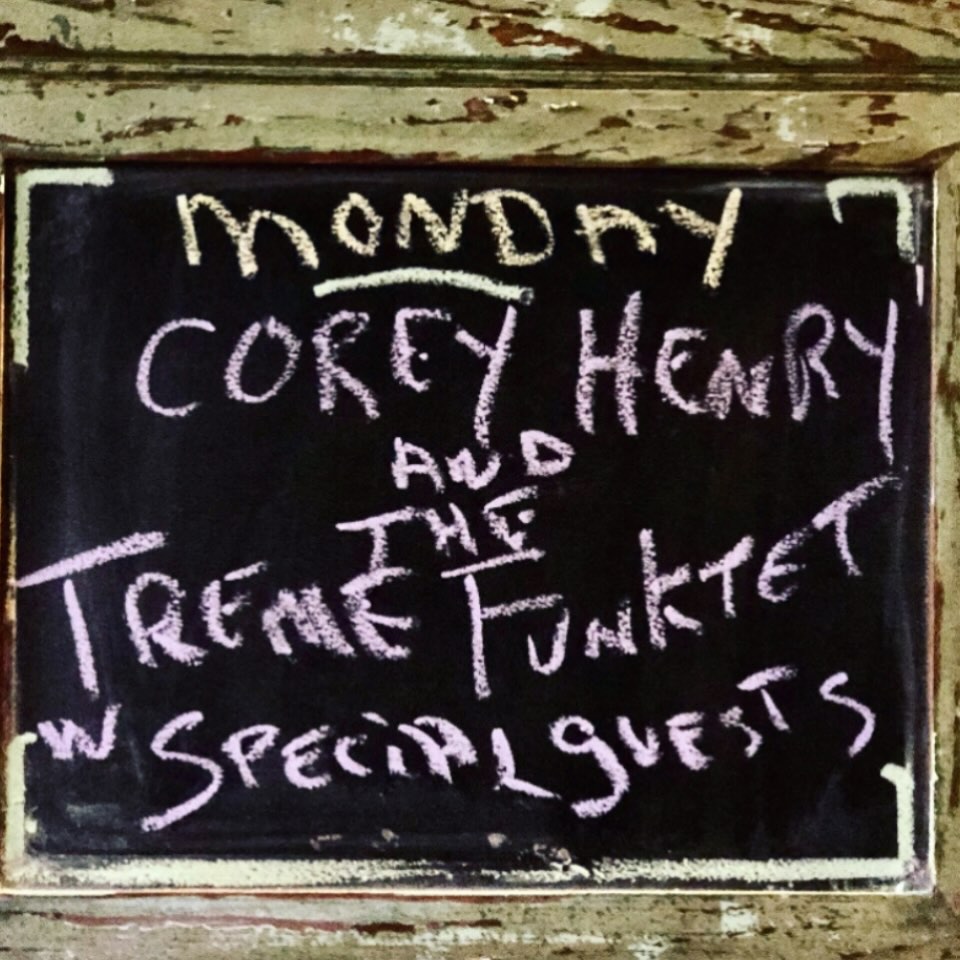 MONDAY
COREY HENRY
AND
THE
TREME FUNKTET
W SPECIAL GUESTS